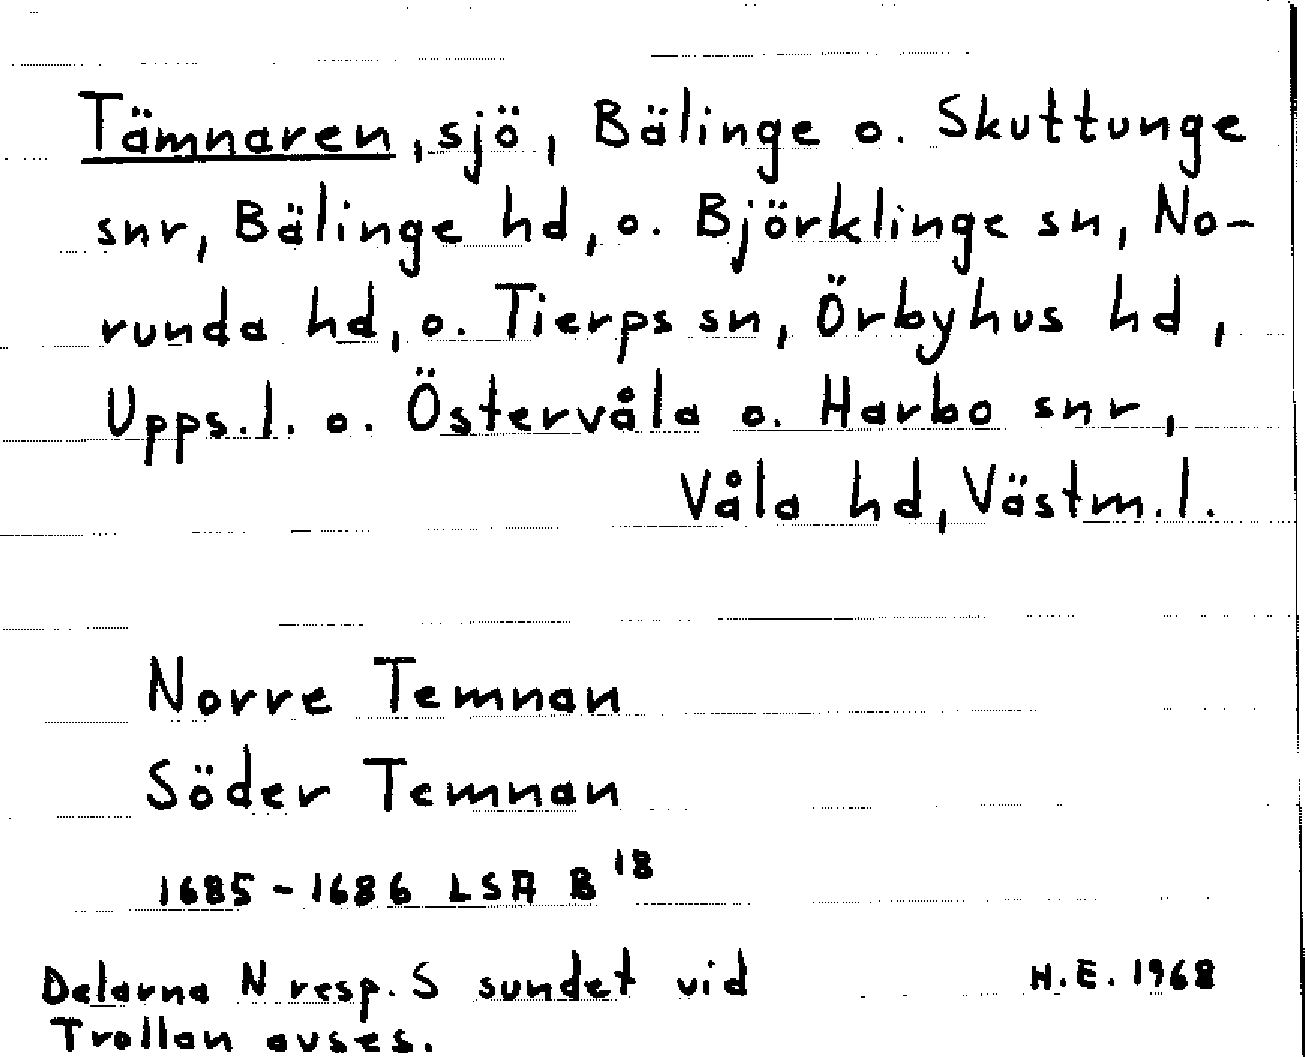 Tämnaren, sjö, Bälinge o. Skuttunge
snr, Bälinge hd, o. Björklinge sn, No-
runda hd, o. Tierps sn, Örbyhus hd,
Upps.l. o. Östervåla o. Harbo snr,
Våla hd, Västm.l.
Norre Temnan
Söder Temnan
1685-1686 LSA B 18
Delarna N resp. S sundet vid
H.E. 1968
Trollan avses.